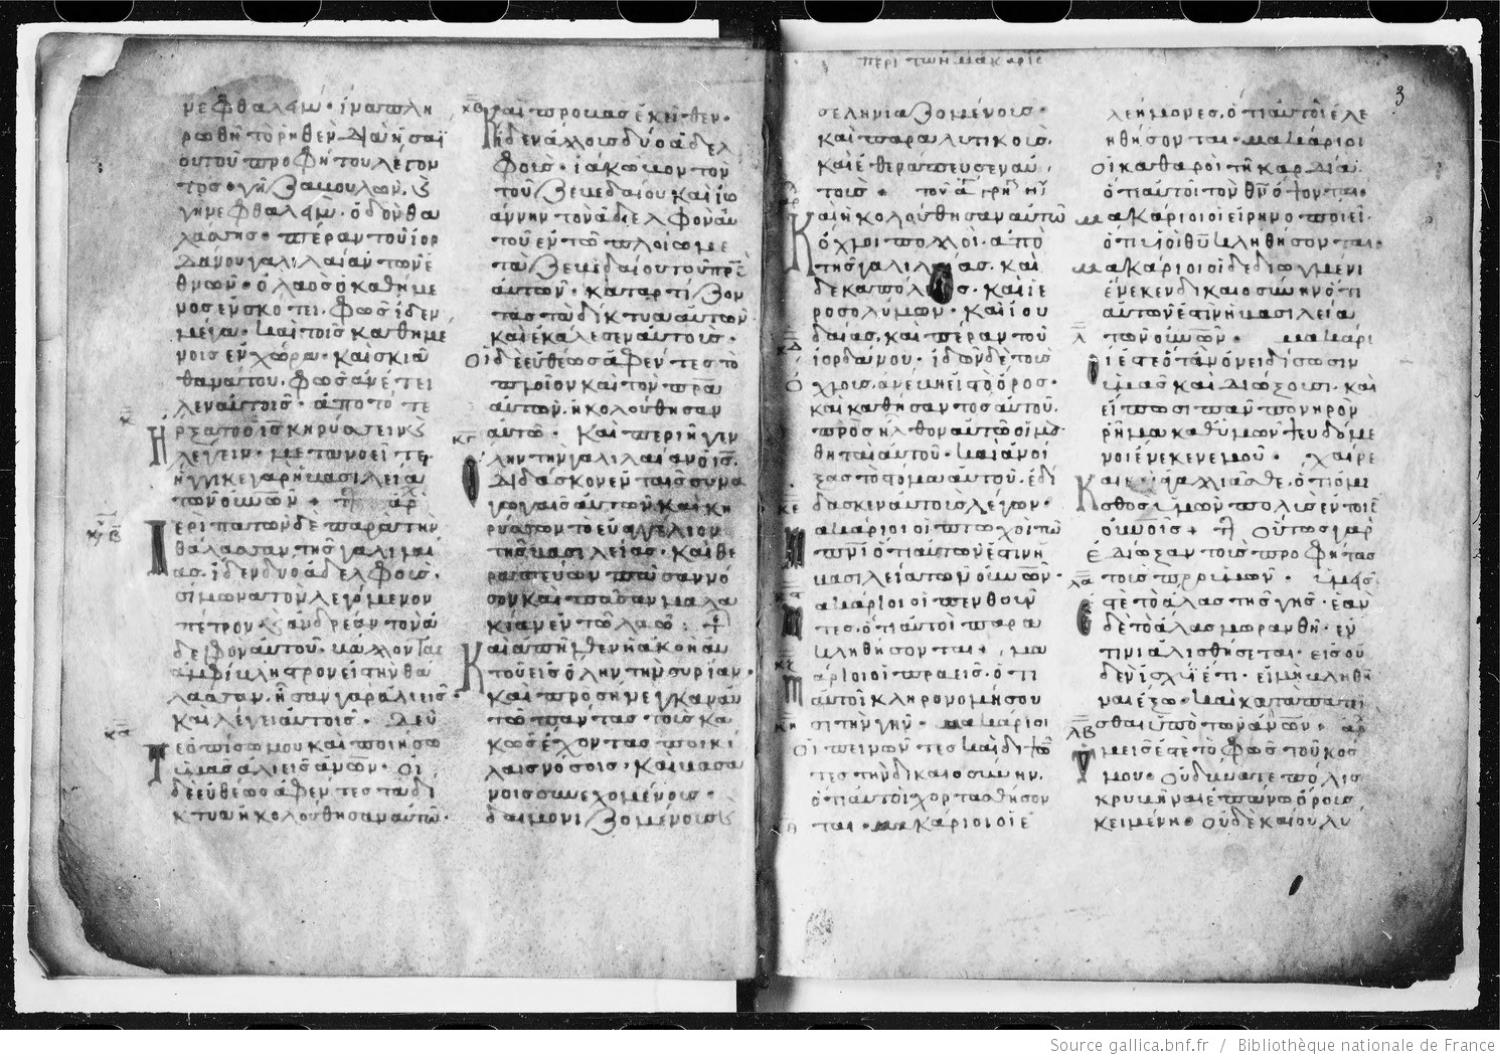 νεφθαλείμ· ἵνα πλη
ρωθῆ τὸ ρηθὲν διὰ ἡσαΐ
ου τοῦ προφήτου λέγον
τος· γῆ ζαβουλὼν, ϗ
γῆ νεφθαλείμ· ὁδὸν θα
λάσσης· πέραν τοῦ ἰορ
δάνου γαλιλαία τῶν ἐ
θνῶν· ὁ λαὸς ὁ καθήμε
νος ἐν σκότει, φῶς ἴδεν
μέγα· καὶ τοῖς καθημέ
νοις ἐν χώρα· καὶ σκιᾶ
θανάτου, φῶς ἀνέτει
λεν αὐτοῖς· ἀπὸ τότε
Ηρξατο ὁ ι̅ς̅ κηρύσσειν ϗ
λέγειν· μετανοεῖτε,
ἤγγικε γὰρ ἡ βασιλεία
τῶν ο̅υ̅ν̅ῶν +
Περιπατῶν δὲ παρὰ τὴν
θάλασσαν τῆς γαλιλαί
ας, ἶδεν δύο ἀδελφοὺς·
σίμωνα τὸν λεγόμενον
πέτρον ϗ ἀνδρέαν τὸν ἀ
δελφὸν αὐτοῦ· βάλλοντας
ἀμφίβληστρον εἰς τὴν θά
λασσαν, ἦσαν γὰρ ἁλιεῖς·
καὶ λέγει αὐτοῖς· Δεῦ
Τε ὀπίσω μου καὶ ποιήσω
ὑμᾶς ἁλιεῖς α̅ν̅ῶν· Οἱ
δὲ εὐθέως ἀφέντες τὰ δί
κτυα ἠκολούθησαν αὐτῶ·
Καὶ προβὰς ἐκεῖθεν·
ἶδεν ἄλλους δύο ἀδελ
φοὺς· ἰάκωβον τὸν
τοῦ ζεβεδαίου καὶ ἰω
άννην τὸν ἀδελφὸν αὐ
τοῦ ἐν τῶ πλοίω με
τὰ ζεβεδαίου τοῦ π̅ρ̅ς̅
αὐτῶν· καταρτίζον
τας τὰ δίκτυα αὐτῶν
καὶ ἐκάλεσεν αὐτοὺς·
Οἱ δὲ εὐθέως ἀφέντες τὸ
πλοῖον καὶ τὸν π̅ρ̅α̅
αὐτῶν, ἠκολούθησαν
αὐτῶ· Καὶ περιῆγεν
Ὅλην τὴν γαλιλαίαν ὁ ι̅ς̅
διδάσκων ἐν ταῖς συνα
γωγαῖς αὐτῶν καὶ κη
ρύσσων τὸ εὐαγγέλιον
τῆς βασιλείας· καὶ θε
ραπεύων πᾶσαν νό
σον καὶ πᾶσαν μαλα
κίαν ἐν τῶ λαῶ : +
Καὶ ἀπῆλθεν ἡ ἀκοὴ αὐ
τοῦ εἰς ὅλην τὴν συρίαν·
καὶ προσήνεγκαν αὐ
τῶ πάντας τοὺς κα
κῶς ἔχοντας ποικί
λαις νόσοις· καὶ βασά
νοις συνεχομένοις·
δαιμονιζομένους ϗ
περὶ τῶν μακαρισ
3
σεληνιαζομένους·
καὶ παραλυτικοὺς,
καὶ ἐθεράπευσεν αὐ
τοὺς +
Καὶ ἠκολούθησαν αὐτῶ
ὄχλοι πολλοὶ· ἀπὸ
τῆς γαλιλαίας, καὶ
δεκαπόλεως· καὶ ἱε
ροσολύμων· καὶ ἰου
δαίας, καὶ πέραν τοῦ
ἰορδάνου· ἰδὼν δὲ τοὺς
Ὄχλους, ἀνέβη εἰς τὸ ὄρος·
καὶ καθήσαντος αὐτοῦ,
προσῆλθον αὐτῶ οἱ μα
θηταὶ αὐτοῦ· καὶ ἀνοί
ξας τὸ στόμα αὐτοῦ, ἐδί
δασκεν αὐτοὺς λέγων·
Μακάριοι οἱ πτωχοὶ τῶ
π̅ν̅ι̅ ὅτι αὐτῶν ἐστιν ἡ
βασιλεία τῶν ο̅υ̅ν̅ῶν·
Μακάριοι οἱ πενθοῦν
τες, ὅτι αὐτοὶ παρα
κληθήσονται + μα
Κάριοι οἱ πραεῖς, ὅτι
αὐτοὶ κληρονομήσου
σι τὴν γῆν· μακάριοι
Οἱ πεινῶντες καὶ διψῶν
τες τὴν δικαιοσύνην,
ὅτι αὐτοὶ χορτασθήσον
ται· μακάριοι οἱ ἐ
λεήμονες, ὅτι αὐτοὶ ἐλε
ηθήσονται· μακάριοι
Οἱ καθαροὶ τῆ καρδία·
ὅτι αὐτοὶ τὸν θ̅ν̅ ὄψονται·
Μακάριοι οἱ εἰρηνοποιεί·
ὅτι υἱοὶ θ̅υ̅ κληθήσονται·
Μακάριοι οἱ δεδιωγμένοι
ἕνεκεν δικαιοσύνης ὅτι
αὐτῶν ἐστιν ἡ βασιλεία
τῶν ο̅υ̅ν̅ῶν· μακάρι
Οί ἐστε ὅταν ὀνειδίσωσιν
ὑμᾶς καὶ διώξουσι, καὶ
εἴπωσι πᾶν πονηρὸν
ρῆμα καθ' ὑμῶν ψευδόμε
νοι ἕνεκεν ἐμοῦ· χαίρε
Τε καὶ ἀγαλλιᾶσθε, ὅτι ὁ μι
σθὸς ὑμῶν πολὺς ἐν τοῖς
ο̅υ̅ν̅οῖς + Οὕτως γὰρ
Ἐδίωξαν τοὺς προφήτας
τοὺς πρὸ ὑμῶν· ὑμεῖς
Ἐστὲ τὸ ἅλας τῆς γῆς· ἐὰν
δὲ τὸ ἅλας μωρανθῆ· ἐν
τίνι ἁλισθήσεται· εἰς οὐ
δὲν ἰσχύει ἔτι· εἰ μὴ βληθῆ
ναι ἔξω· καὶ καταπατεῖ
σθαι ὑπὸ τῶν α̅ν̅ῶν·
Ὑμεῖς ἐστὲ τὸ φῶς τοῦ κόσ
μου· Οὐ δύναται πόλις
κρυβῆναι ἐπάνω ὄρους
κειμένη· οὐδὲ καίου λύ
Source gallica.bnf.fr / Bibliothèque nationale de France